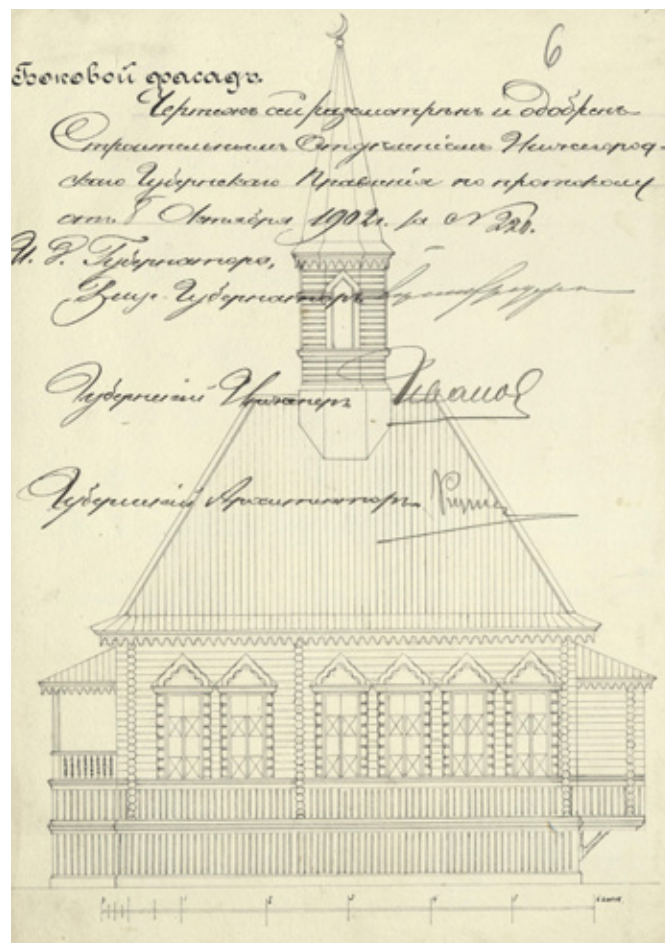 6
Боковой фасадъ.
Чертежъ сей разсмотрѣнъ и одобренъ
Строительнымъ Отдѣленіемъ Нижегород-
скаго Губернскаго Правленія по протоколу
отъ 8 Октября 1902 г. за № 220.
И. д. Губернатора,
Вице-Губернаторъ
Губернскій Инженеръ Иванов
Губернскій Архитекторъ